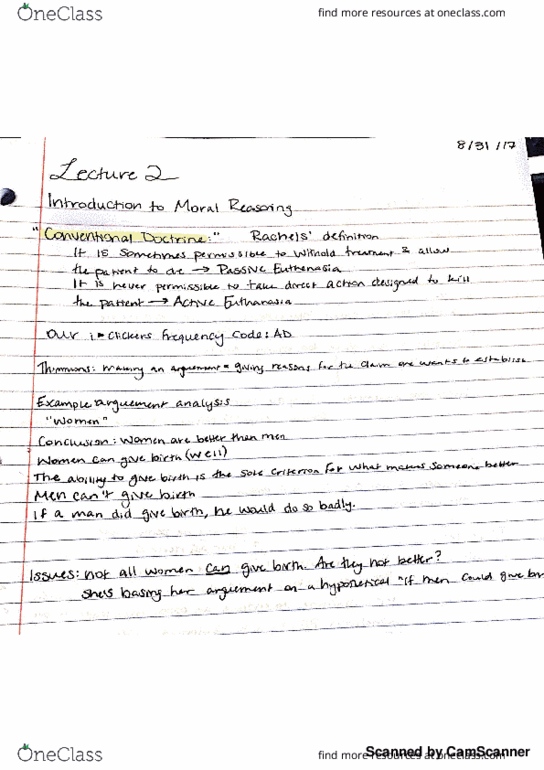 OneClass
find more resources at oneclass.com
8/31/17
Lecture 2
Introduction to Moral Reasoning
"Conventional Doctrine:" Rachels' definition
It is sometimes permissible to withold treatment & allow
the patient to die → Passive Euthenasia
It is never permissible to take direct action designed to kill
the patient → Active Euthanasia
Our i-clickers frequency code: AD
Timmons: making an arguement = giving reasons for the claim one wants to establish
Example arguement analysis
"Women"
Conclusion: Women are better then men
Women can give birth (well)
The ability to give birth is the sole criterion for what makes someone better
Men can't give birth
If a man did give birth, he would do so badly.
Issues: not all women can give birth. Are they not better?
she's basing her arguement on a hypothetical "if men could give
OneClass
find more resources at oneclass.com
Scanned by CamScanner